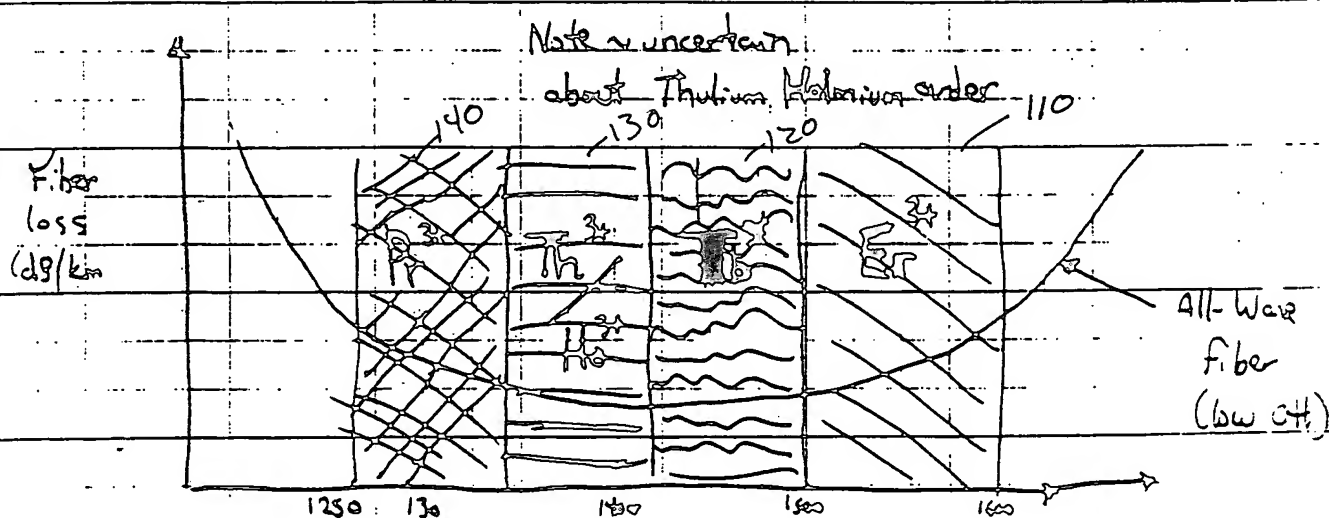 Note ~ uncertain
about Thulium, Holmium order
140
130
120
110
Fiber
loss
(dB/km
Pr3+
Th3+
Er3+
Ho3+
All-Wave
Fiber
(low OH)
1250
130
1400
1500
1600